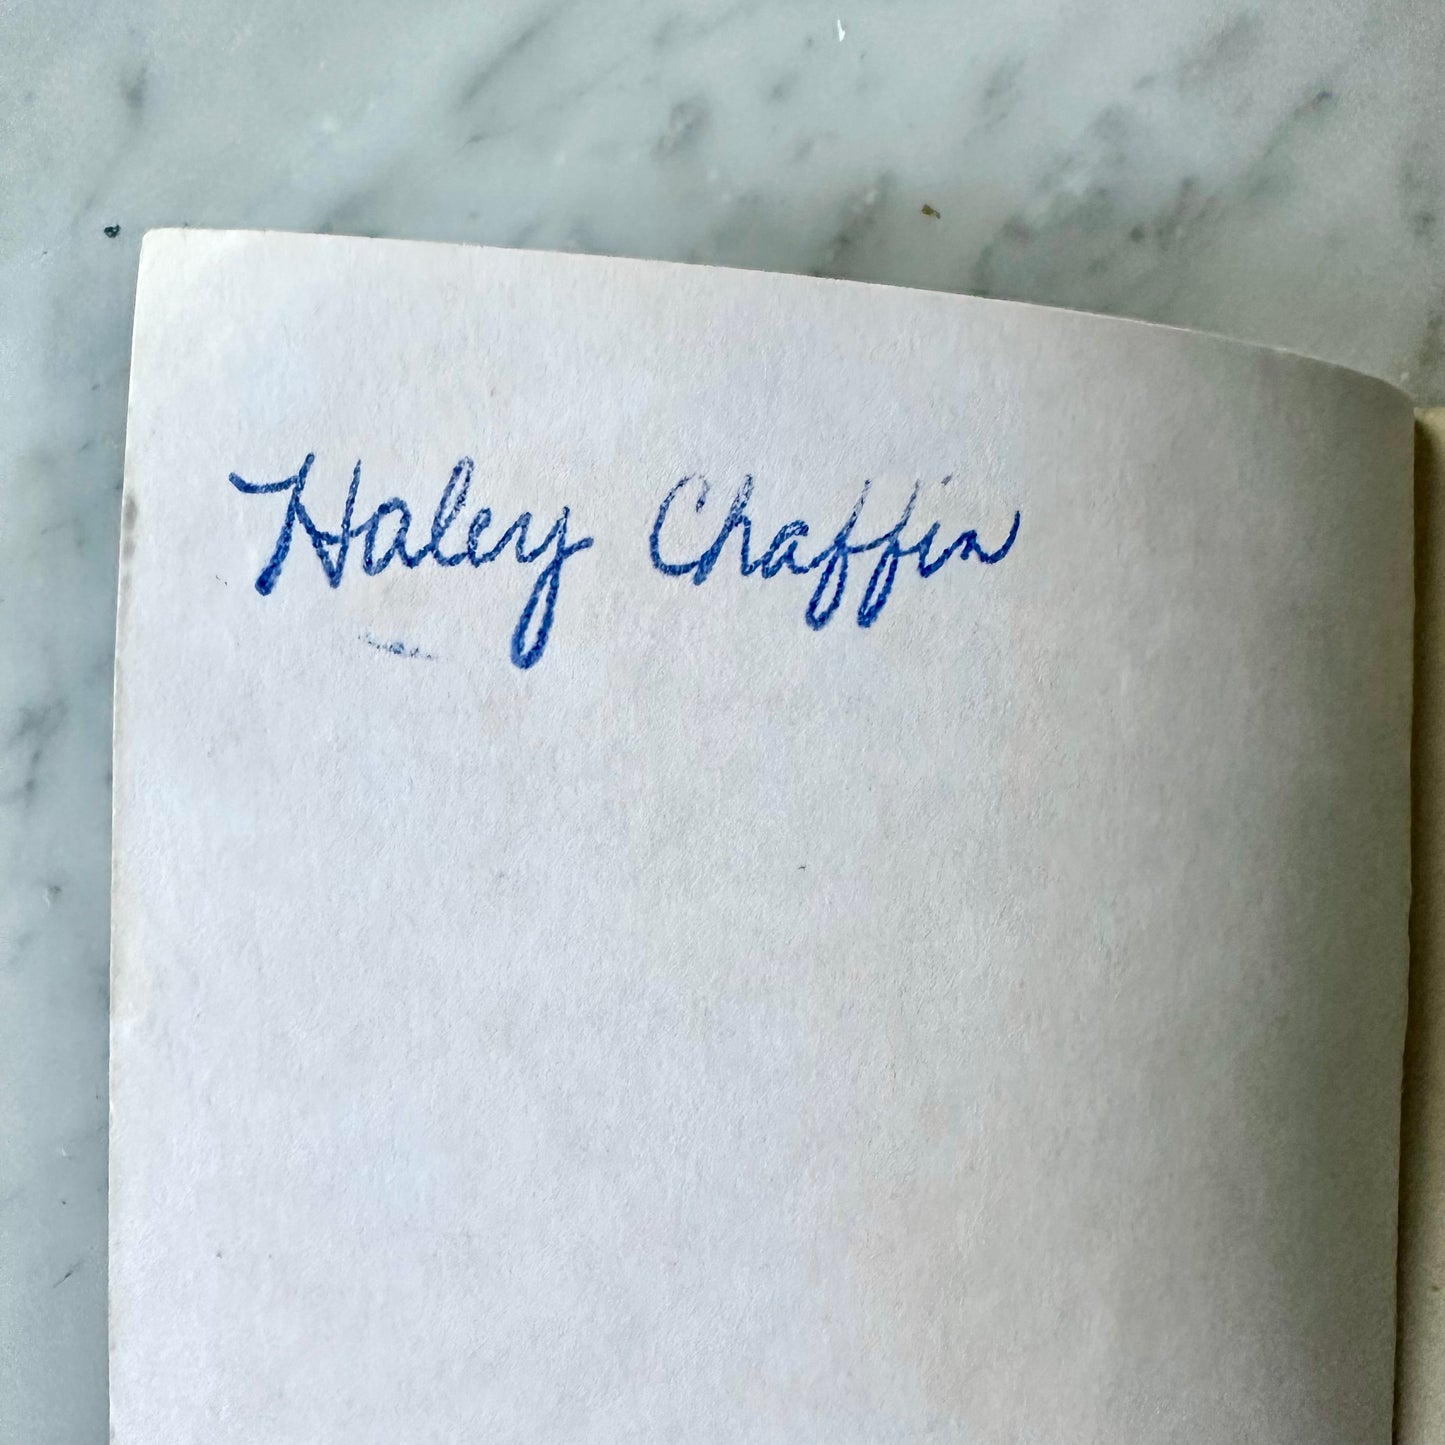 Haley Chaffin